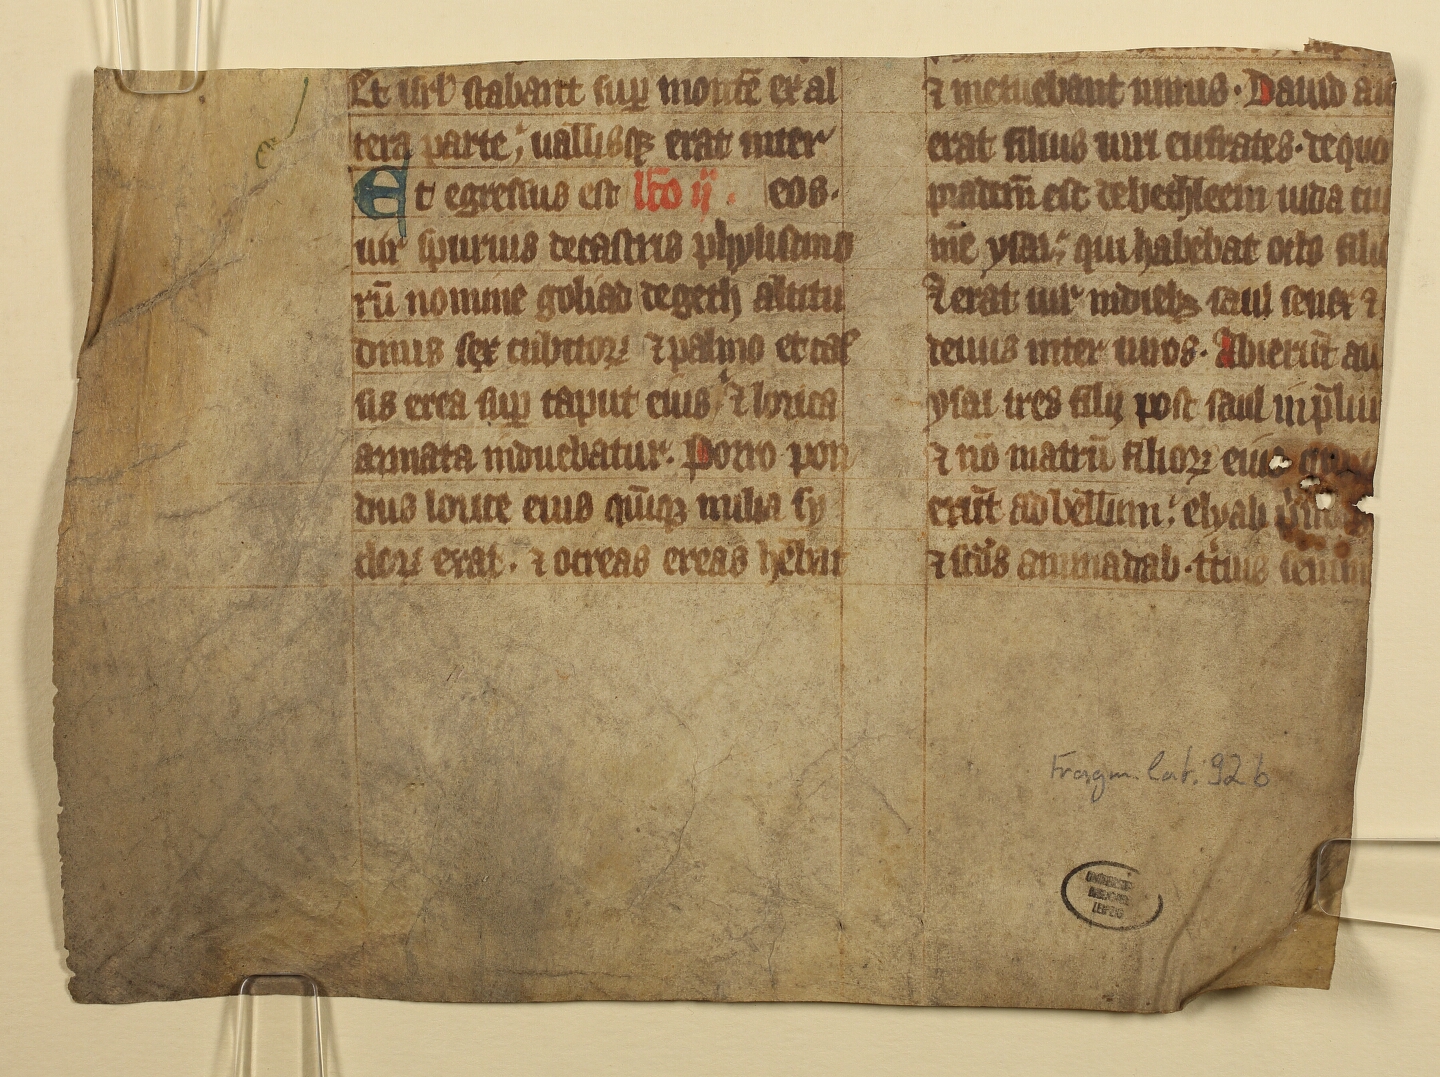 Et isrl stabant sup montē ex al
tera parte; uallisq; erat inter
Et egressus est lc̄o ij. eos.
uir spurius de castris phylistino
rū nomine goliad de geth altitu
dinis sex cubitoꝝ ⁊ palmo et cas
sis erea sup caput eius; ⁊ lorica
armata induebatur. Porro pon
dus lorice eius quīq; milia sy
cloꝝ erat. ⁊ ocreas ereas hēbat
⁊ metuebant nimis. Dauid au
erat filius uiri eufrates. de quo
est de bethleem iuda cui
nōe ysai; qui habebat octo filii
⁊ erat uir in dieb; saul senex ⁊
uiros. Abierūt au
ysai tres filij post saul in p̄liu
⁊ nō filioꝝ eius
erūt ad bellum; elyab
⁊ scd̄s aminadab. t̓cius semm
Fragm. Lat. 92 b
UNIVERSIT.
BIBLIOTHEK
LEIPZIG